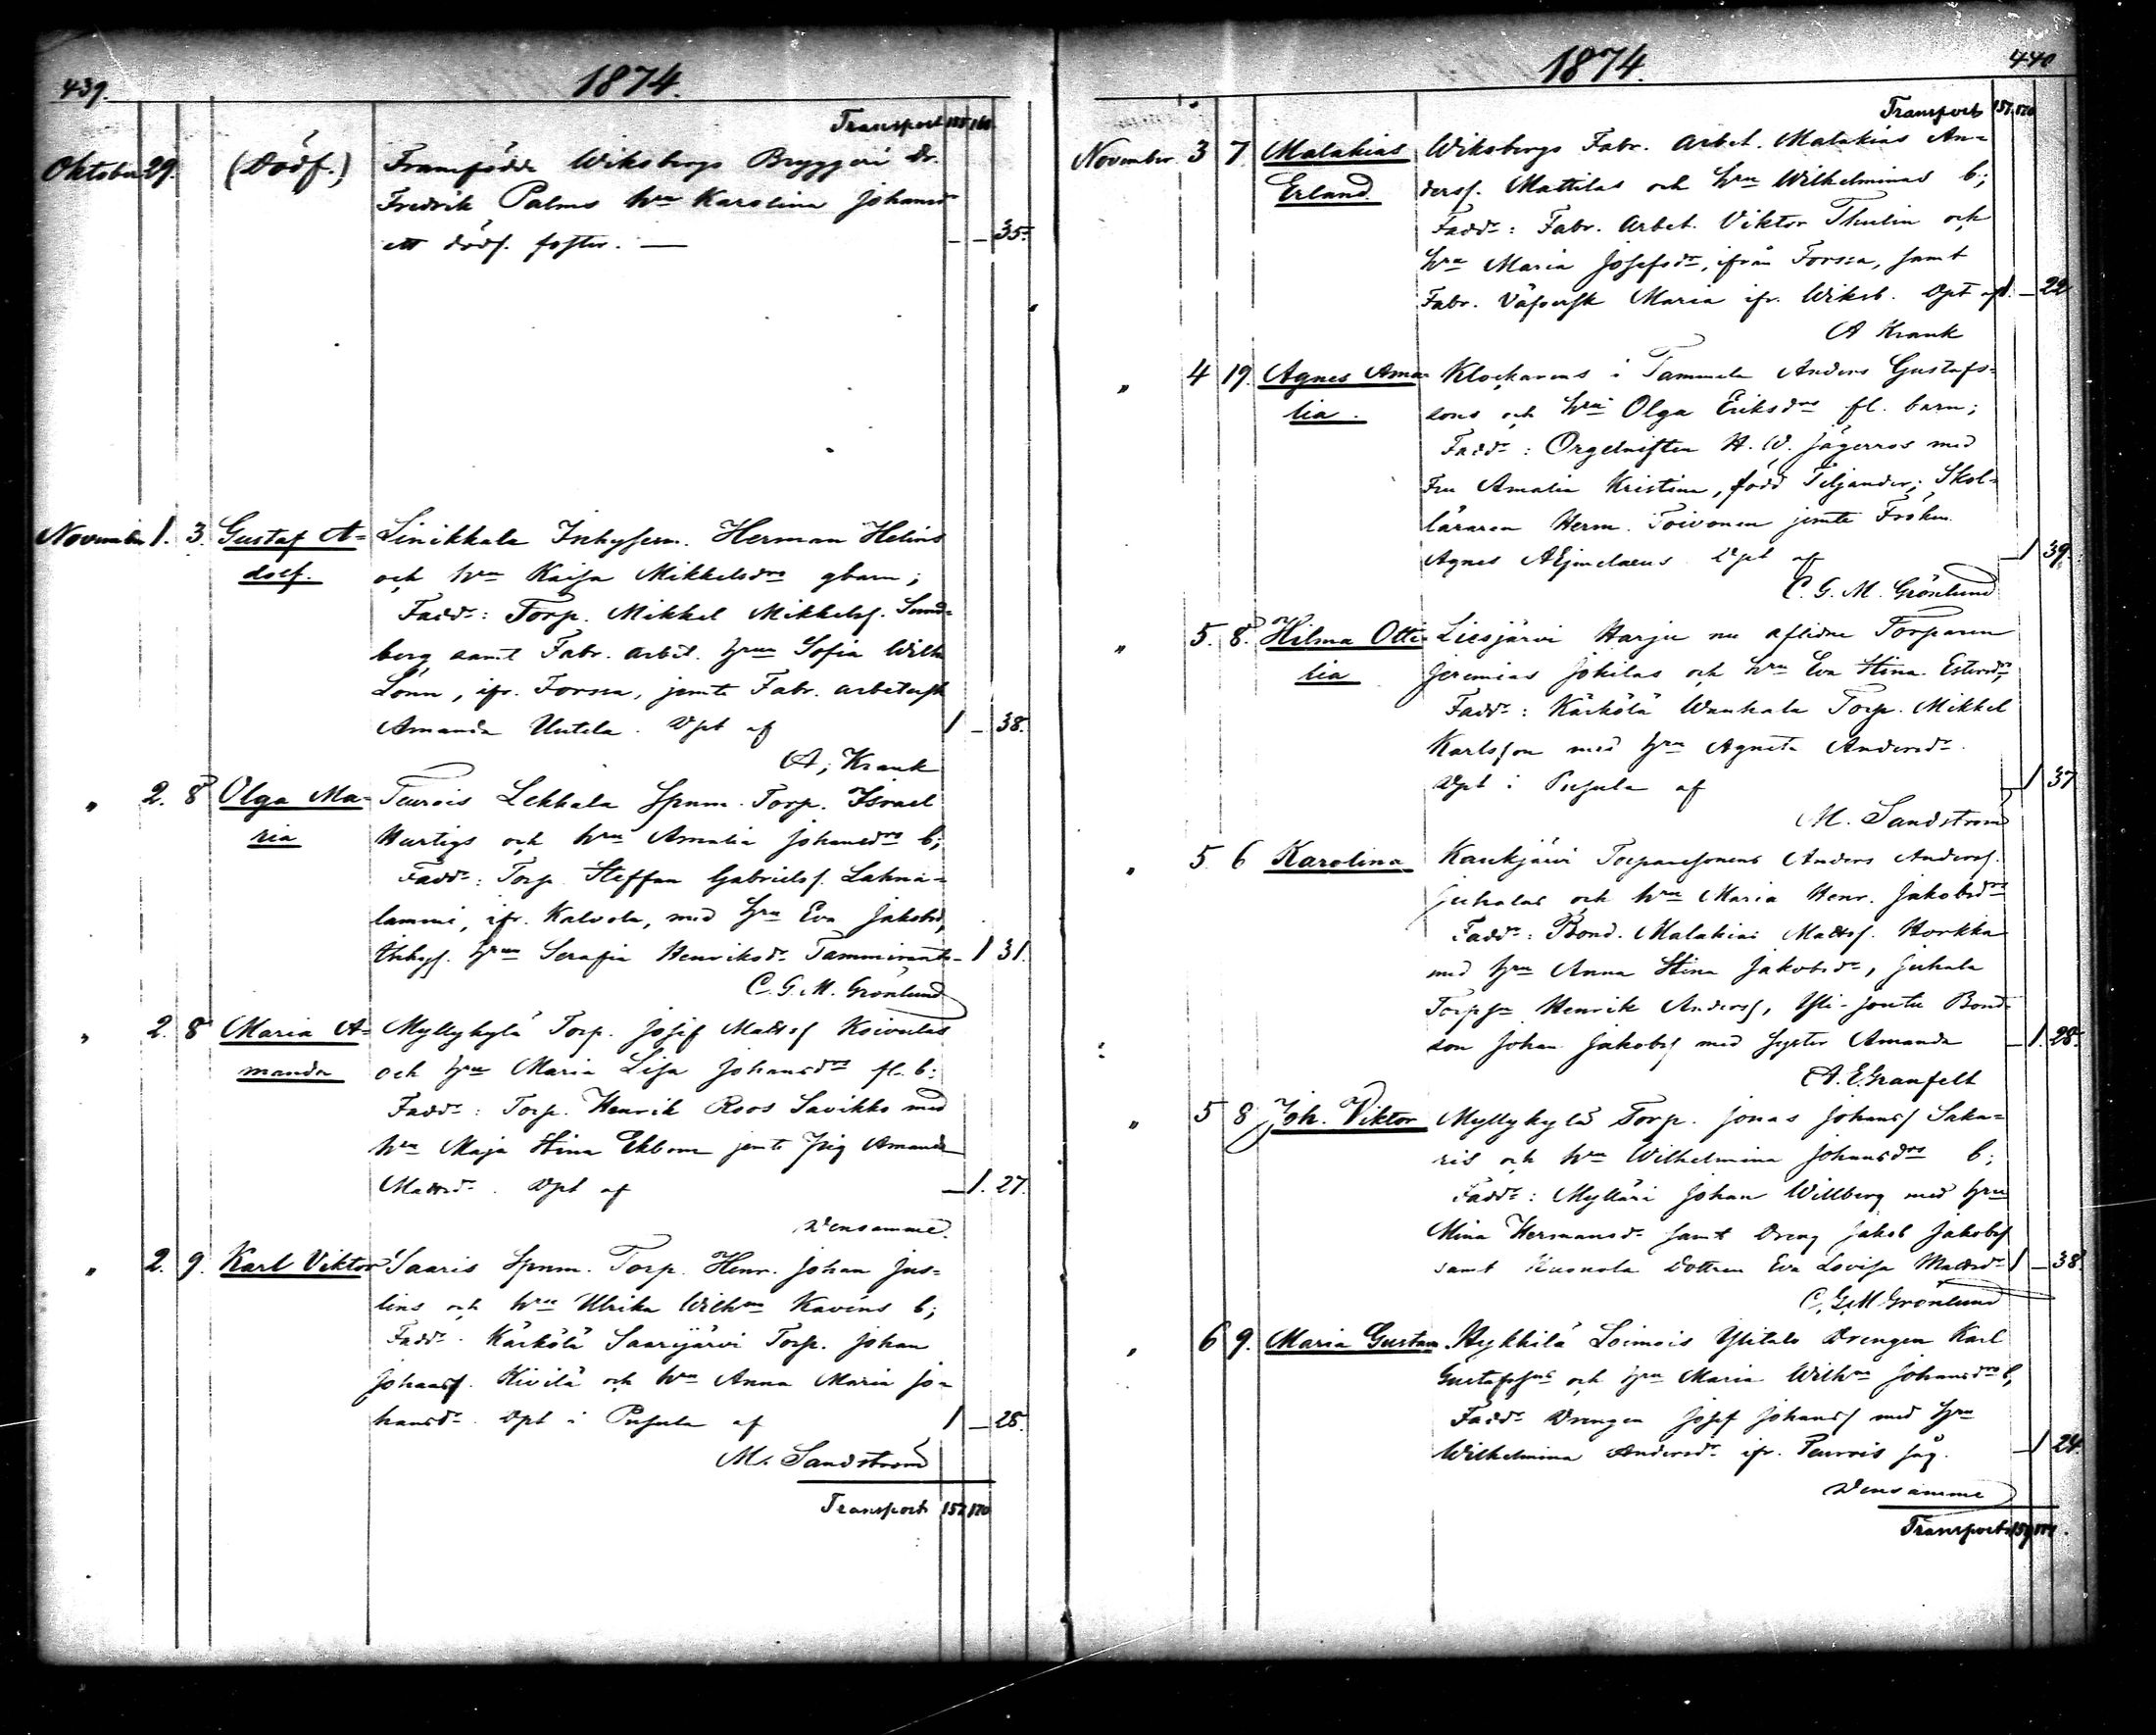 439.
1874.
Transport
Oktober 29. (Dödf.) Framfödde Wiksbergs Bryggeri Dr.
Fredrik Palms hru Karolina Johansdr
ett dödf. foster. — — — 35.
November 1. 3. Gustaf A- Sinikkala Inhysesm. Herman Helins
dolf. och hru Kaisa Mikkelsdrs gbarn;
Faddr: Torp. Mikkel Mikkelss. Sund-
berg samt Fabr. arbet. hru Sofia Wilh.
Lönn, ifr. Forssa, jemte Fabr. arbetersk
Amanda Uutela. Dpt af 1 — 38.
A. Krank
" 2. 8 Olga Ma- Teurois Lekkala Spnm. Torp. Israel
ria Hurtigs och hru Amalia Johansdrs b;
Faddr: Torp. Steffan Gabrielss. Lahna-
lammi, ifr. Kalvola, med hru Eva Jakobsd,
Inhys. hru Serafia Henriksdr — 1 31.
C. G. M. Grönlund
" 2. 8 Maria A- Myllykylä Torp. Josef Mattss Koivulas
manda och hru Maria Lisa Johansdrs fl. b;
Faddr: Torp. Henrik Roos Savikko med
hru Maja Stina Ekbom jemte Pig Amanda
Mattsdr. Dpt af — 1. 27.
Densamme.
" 2. 9. Karl Viktor Saaris Spnm. Torp. Henr. Johan Jus-
lins och hru Ulrika Wilhna Kavéns b;
Faddr. Kärkölä Saarijärvi Torp. Johan
Johanss. Kivilä och hru Anna Maria Jo-
hansdr. Dpt i Pusula af 1 — 28.
M. Sandström
Transport 157 170
1874.
440
Transport 157. 170
November. 3 7. Malakias Wiksbergs Fabr. Arbet. Malakias An-
Erland. derss. Mattilas och hru Wilhelminas b;
Faddr: Fabr. Arbet. Viktor Thulin och
hru Maria Josefsdr, ifrån Forssa, samt
Fabr. Väfversk Maria ifr. Wiksb. Dpt af 1. — 22
A Krank
" 4 19. Agnes Ama- Klockarens i Tammela Anders Gustafs-
lia. sons och hru Olga Eriksdrs fl. barn;
Faddr: Orgelnisten H. W. Jägerroos med
Fru Amalia Kristina, född Tiljander; Skol-
läraren Herm. Toivonen jemte Fröken
Agnes Aejmelaeus Dpt af — 1 39.
C. G. M. Grönlund
" 5. 8. Hilma Otti- Liesjärvi Harju nu aflidne Torparen
lia Jeremias Jokilas och hru Eva Stina
Faddr: Kärkölä Wanhala Torp. Mikkel
Karlsson med hru Agneta Andersdr.
Dpt i Pusula af — 1 37
M. Sandström
" 5. 6 Karolina Kaukjärvi Torparesonens Anders Anderss.
Juhalas och hru Maria Henr. Jakobsdrs
Faddr: Bond. Malakias Mattss. Horkka
med hru Anna Stina Jakobsdr, Juhala
Henrik Anderss, Yli-Jouttu Bond-
son Johan Jakobss med syster Amanda — 1. 28.
A. E. Granfelt
" 5 8 Joh. Viktor Myllykylä Torp. Jonas Johanss Saka-
ris och hru Wilhelmina Johansdrs b;
Faddr: Mylläri Johan Willberg med hru
Mina Hermansdr samt Dreng Jakob Jakobss
samt Kuonola Dottren Eva Lovisa Mattsdr 1 — 38.
C. G. M Grönlund
" 6 9. Maria Gustava Hykkilä Loimois Ylitalo Drengen Karl
Gustafssons och hru Maria Wilhna Johansdrs b,
Faddr Drengen Josef Johanss med hru
Wilhelmina Andersdr ifr. Teurois — 1 24.
Densamme
Transport